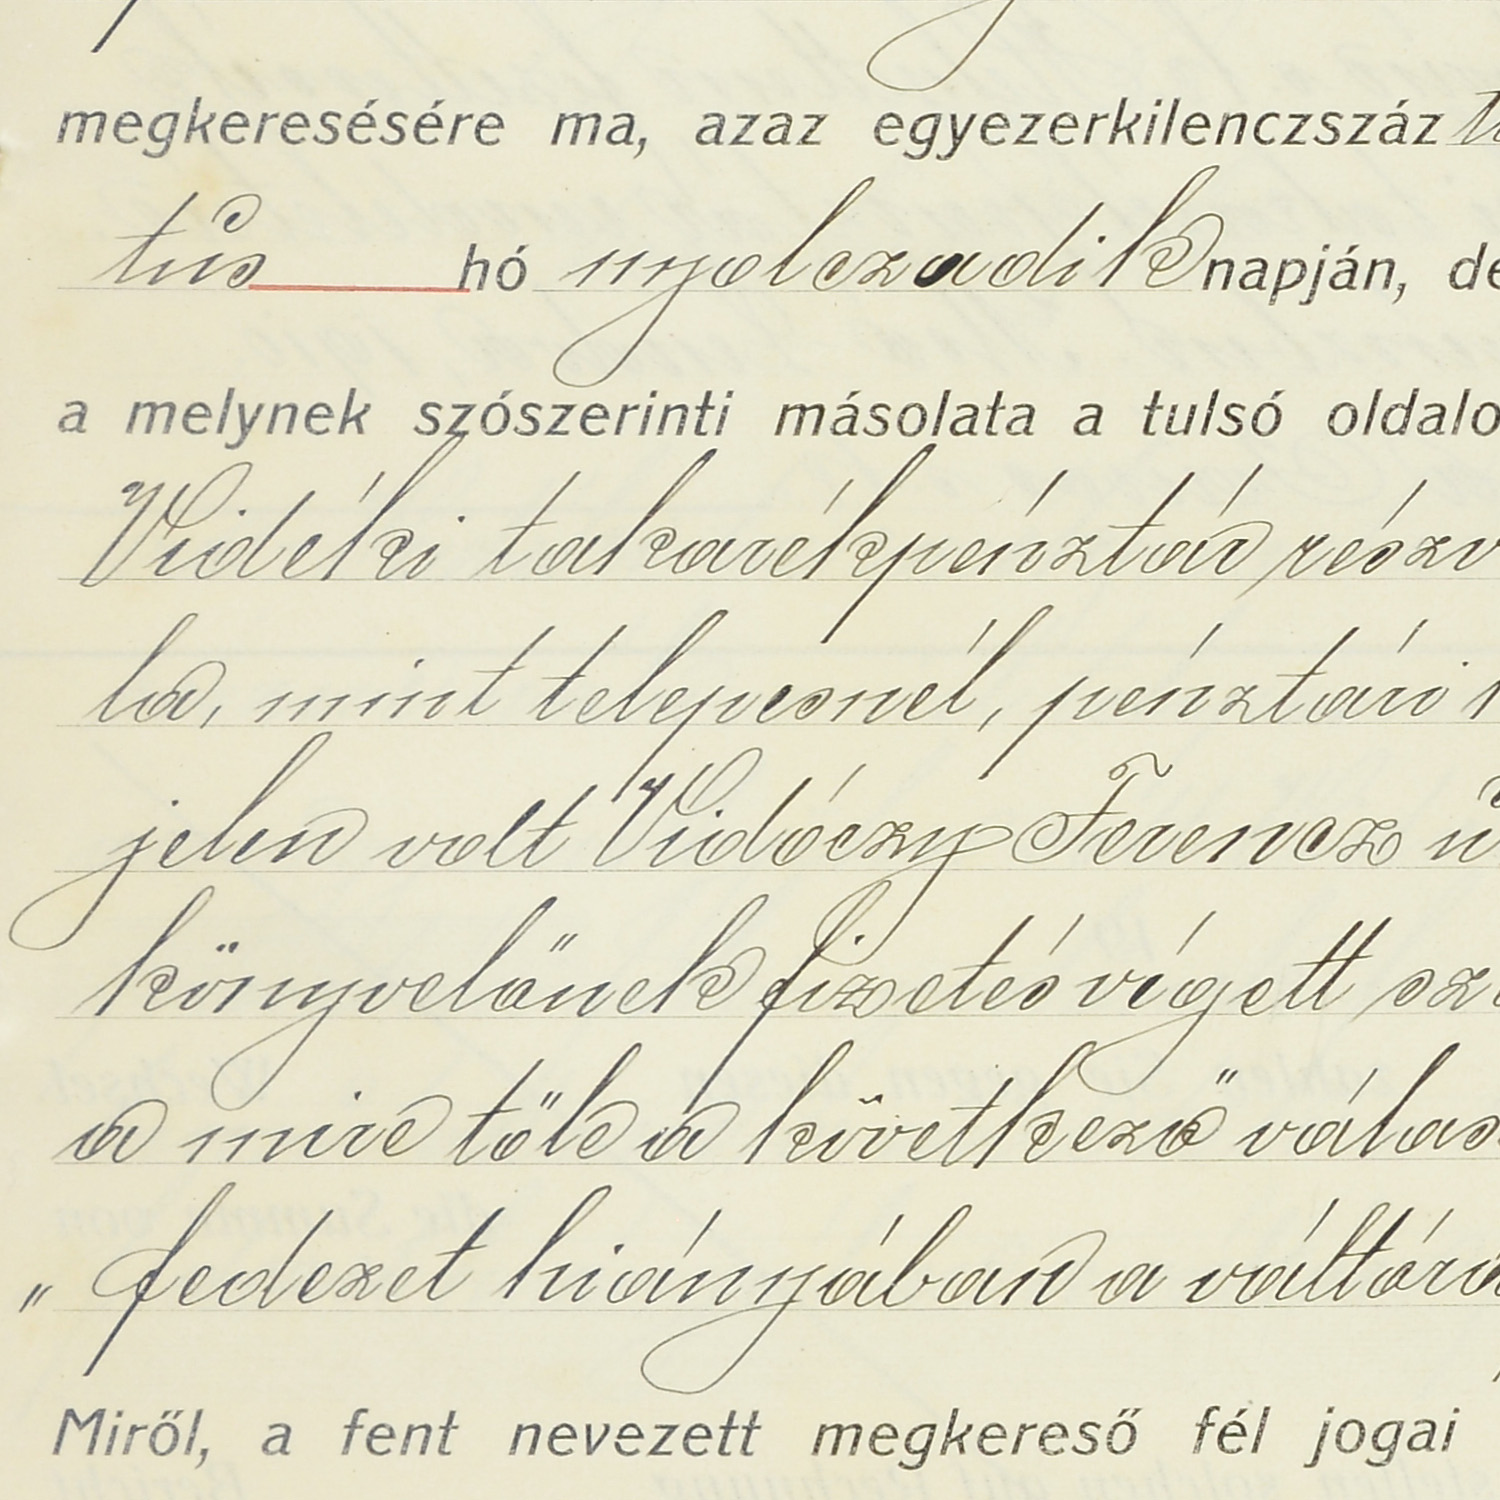 megkeresésére ma, azaz egyezerkilenczszáz
tus hó nyolczadik napján, de
a melynek szószerinti másolata a tulsó oldalo
Vidéki takarékpénztár részv
la, mint telepesnél, pénztári
jelen volt Vidóczy Ferencz ú
könyvelőnek fizetés végett sz
a mire tőle a következő válas
„ fedezet hiányában a váltóra
Miről, a fent nevezett megkereső fél jogai